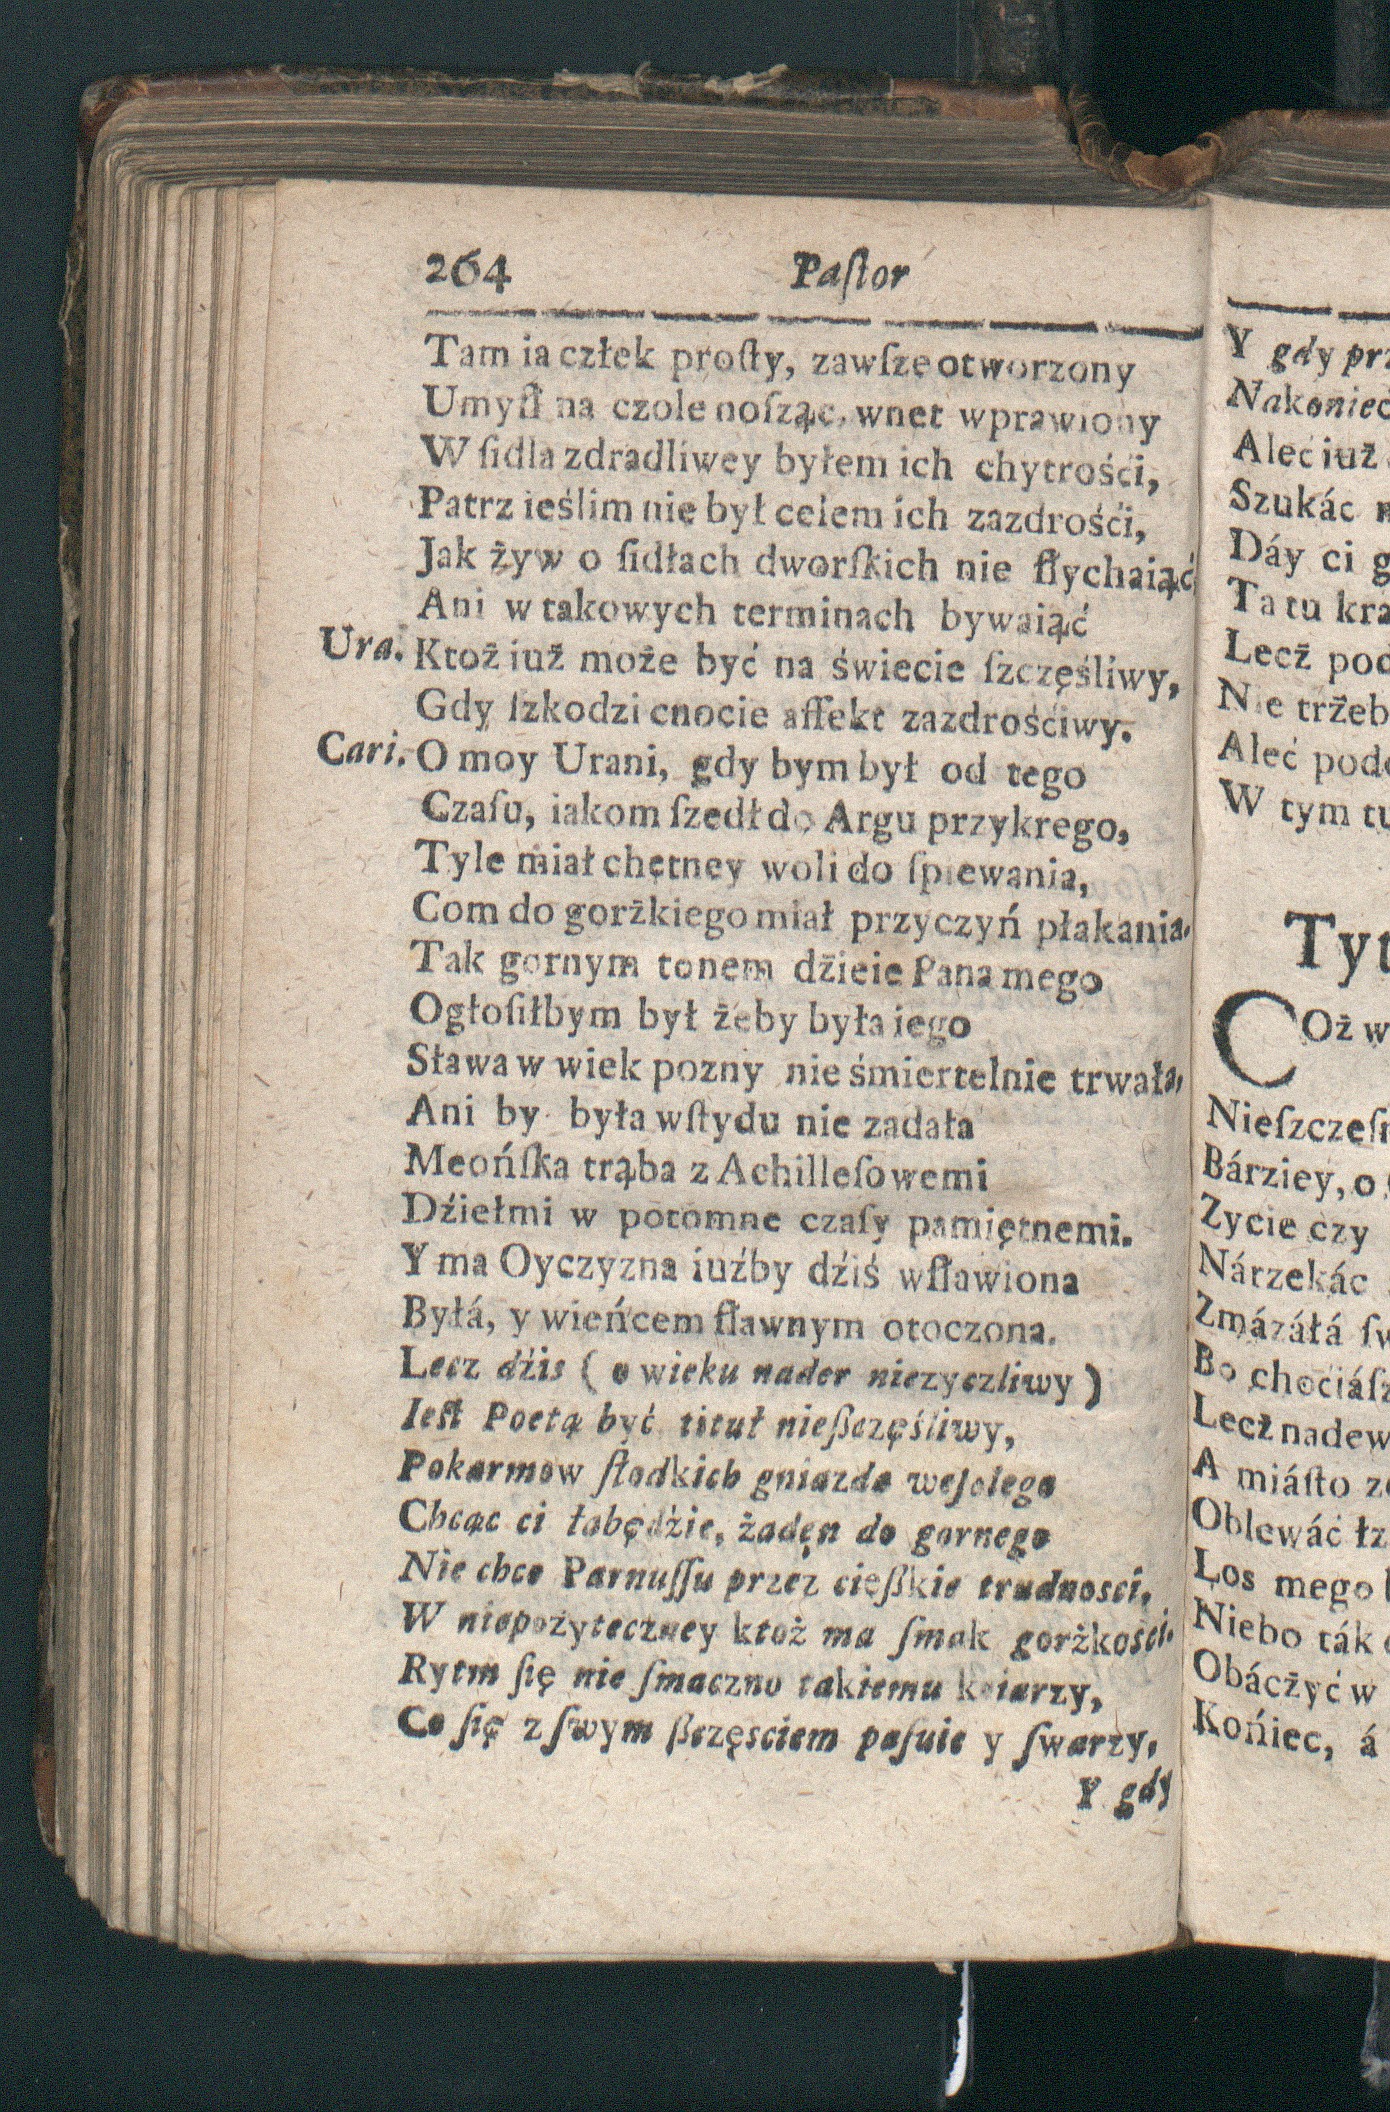 264 Paſtor
Tam ia człek proſty, zawſze otworzony
Umyſł na czole noſząc, wnet wprawiony
W ſidla zdradliwey byłem ich chytrośći,
Patrz ieślim nie był celem ich zazdrośći,
Jak żyw o ſidłach dworſkich nie ſłychaiąć
Ani w takowych terminach bywaiąć
Ura. Ktoż iuż może być na świecie ſzczęśliwy,
Gdy ſzkodzi cnocie affekt zazdrośćiwy.
Cari. O moy Urani, gdy bym był od tego
Czaſu, iakom ſzedł do Argu przykrego,
Tyle miał chętney woli do ſpiewania,
Com do gorżkiego miał przyczyń płakania.
Tak gornym tonem dźieie Pana mego
Ogłoſiłbym był żeby była iego
Sława w wiek pozny nie śmiertelnie trwała,
Ani by była wſtydu nie zadała
Meońſka trąba z Achilleſowemi
Dźiełmi w potomne czaſy pamiętnemi.
Y ma Oyczyzna iuźby dźiś wſławiona
Byłá, y wieńcem ſławnym otoczona.
Lecz dźis ( o wieku nader niezyczliwy )
Ieſt Poetą być tituł nießczęśliwy,
Pokarmow ſłodkich gniazda weſolego
Chcąc ci łabędźie, żadęn do gornego
Nie chce Parnuſſu przez cięßkie trudnosci,
W niepożyteczney ktoż ma ſmak gorżkośći.
Rytm ſię nie ſmaczno takiemu koiarzy,
Co ſię z ſwym ßczęsciem paſuie y ſwarzy,
Y gdy
Y gdy prz
Nakoniec
Aleć iuż
Szukác
Dáy ci g
Ta tu kra
Lecż poc
Nie trżeb
Aleć podo
W tym tu
Tyt
COż w
Nieſzczeſn
Bárziey, o
Zycie czy
Nárzekác
Zmázáłá ſw
Bo chociáſz
Lecż nadew
A miáſto zo
Oblewáć łz
Los mego
Niebo ták
Obácżyć w
Końiec, á